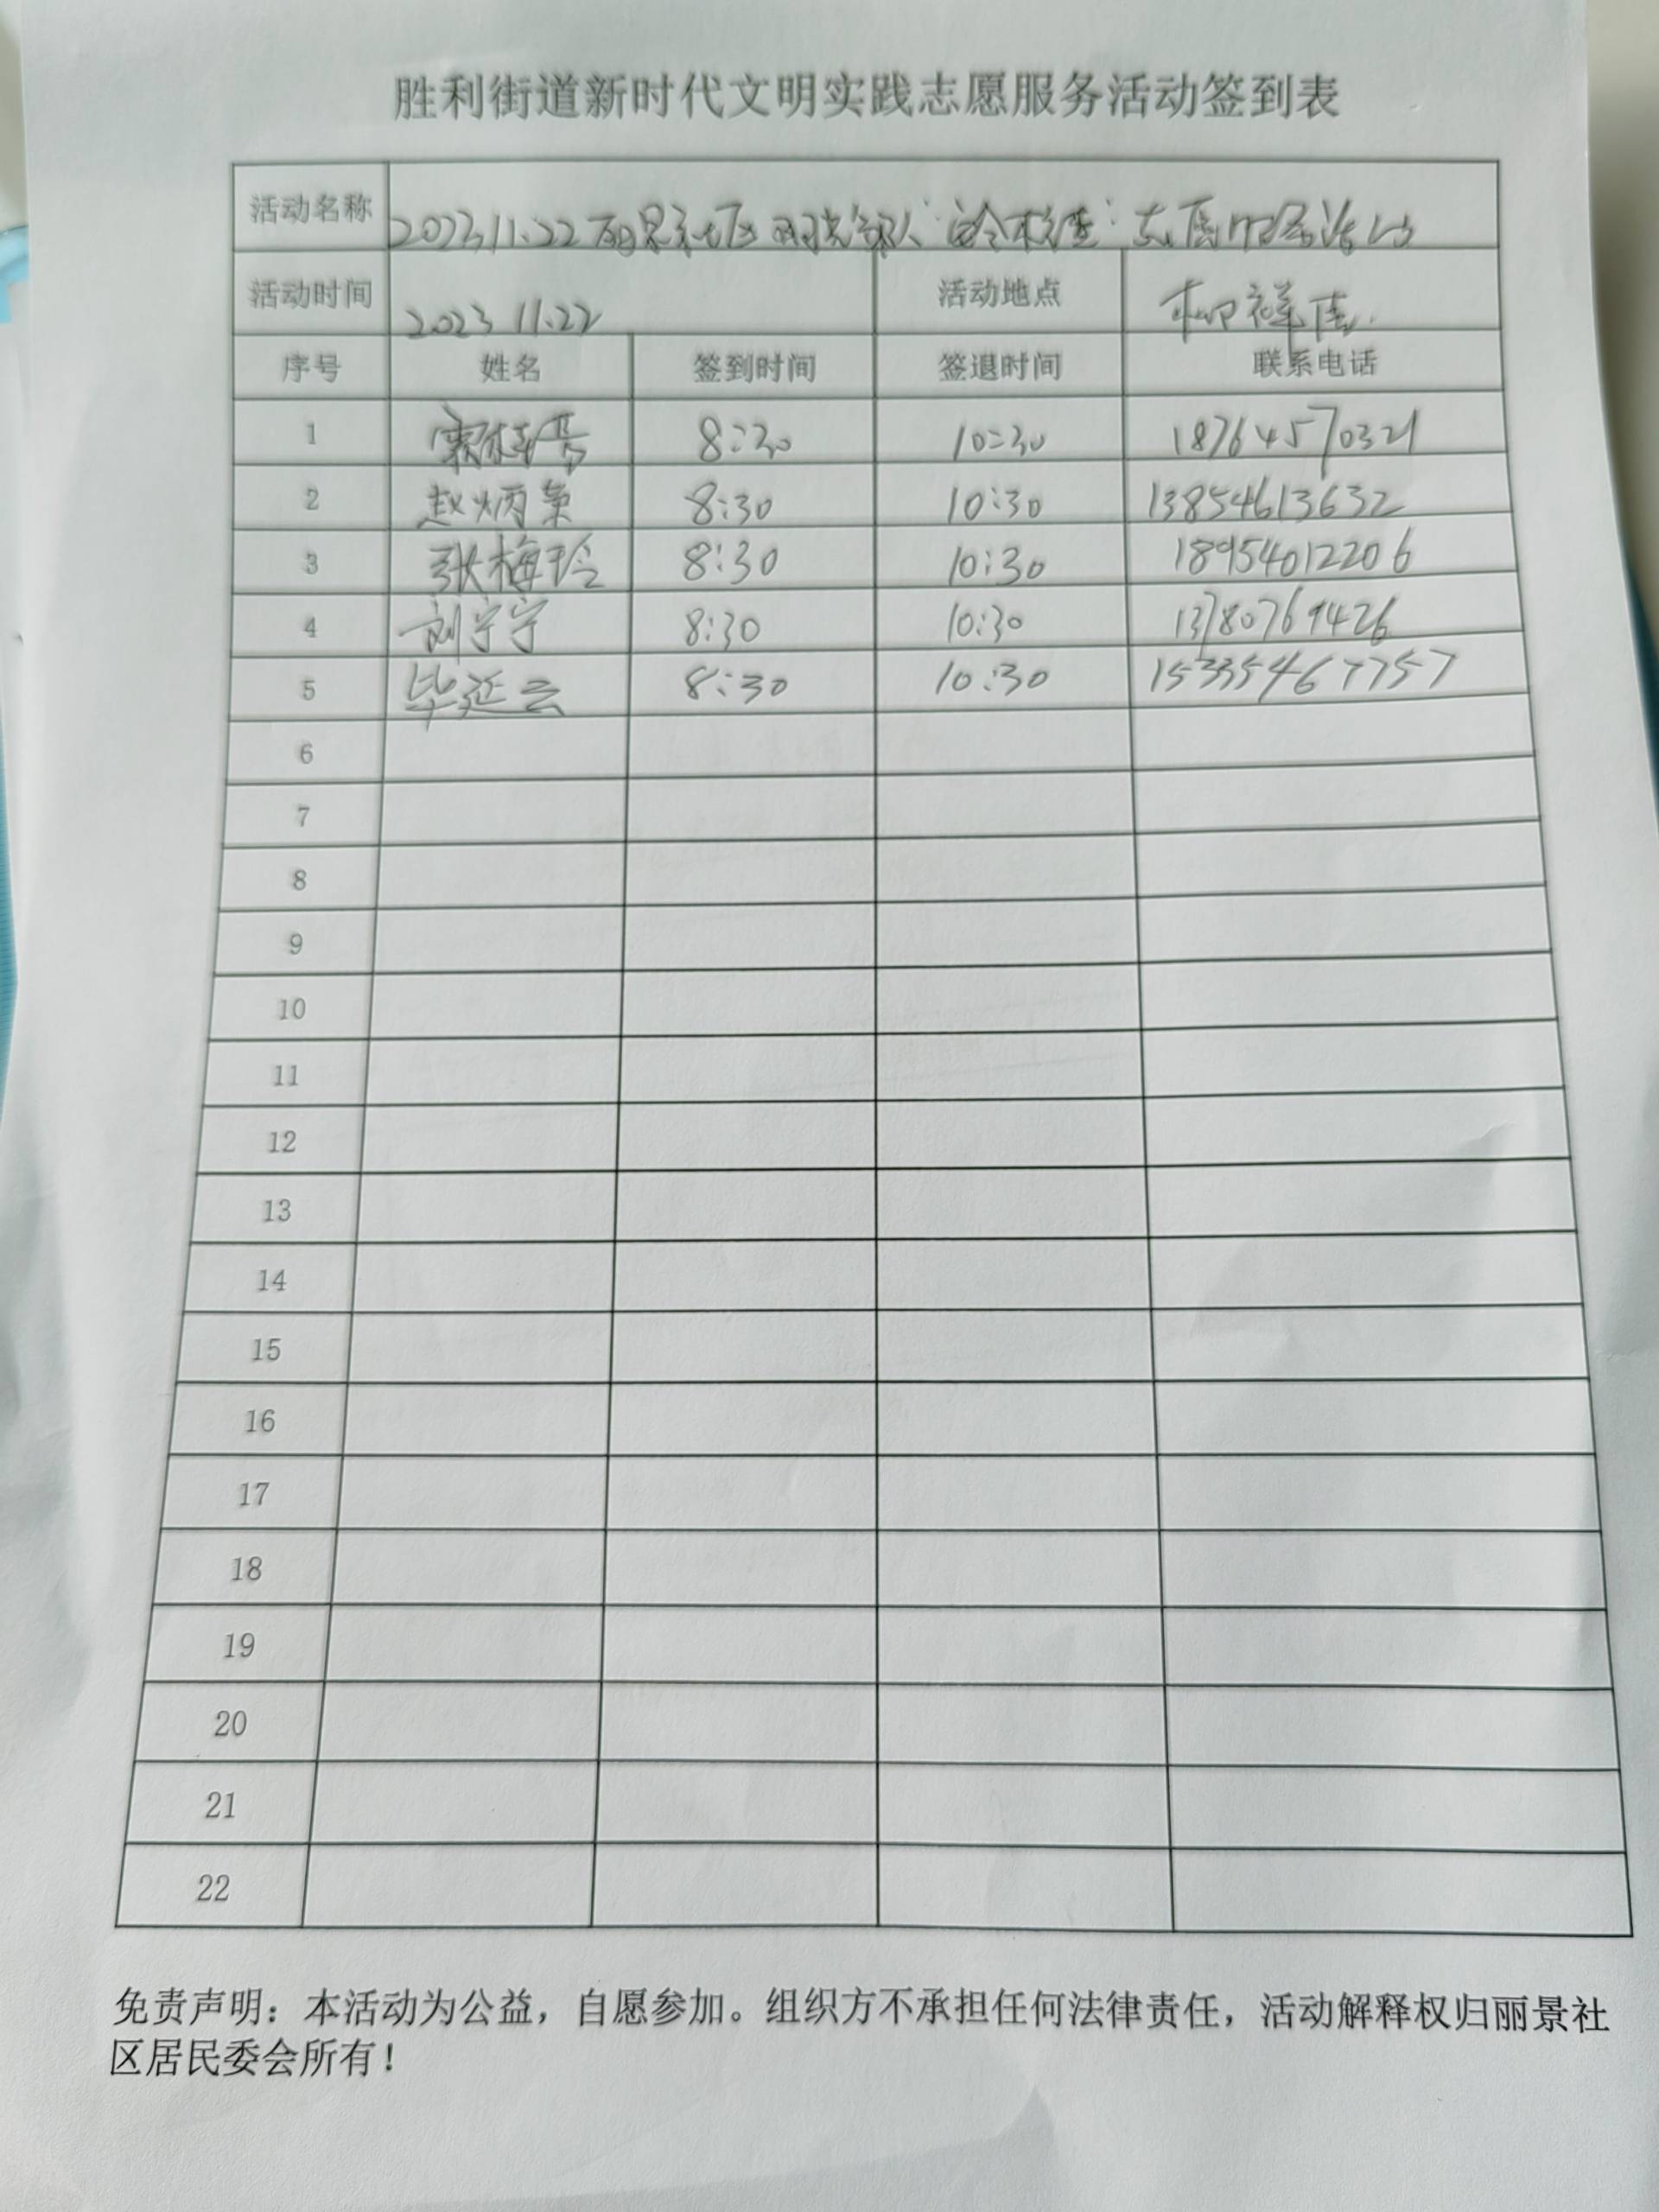 胜利街道新时代文明实践志愿服务活动签到表
活动名称 2023.11.22丽景社区 志愿服务活动
活动时间 2023 11.22 活动地点 柳祥
序号 姓名 签到时间 签退时间 联系电话
1 8:30 10:30 18764570321
2 赵炳 8:30 10:30 13854613632
3 张梅玲 8:30 10:30 18954012206
4 刘宁宁 8:30 10:30 13780769426
5 毕延云 8:30 10:30 15335467757
6
7
8
9
10
11
12
13
14
15
16
17
18
19
20
21
22
免责声明：本活动为公益，自愿参加。组织方不承担任何法律责任，活动解释权归丽景社
区居民委会所有！